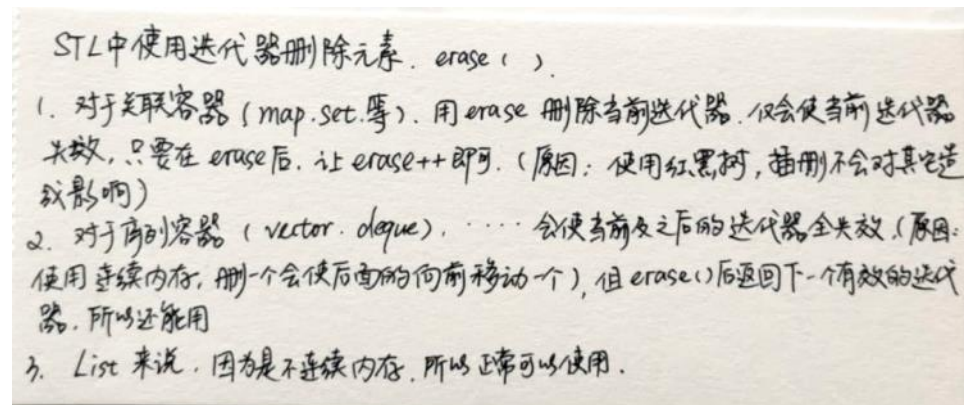 STL中使用迭代器删除元素. erase ( ).
1. 对于关联容器 (map.set.等). 用erase 删除当前迭代器. 仅会使当前迭代器
失效, 只要在 erase后. 让 erase++ 即可. (原因: 使用红黑树, 插删不会对其它造
成影响)
2. 对于序列容器 ( vector. deque). ····· 会使当前及之后的迭代器全失效. (原因:
使用连续内存, 删一个会使后面的向前移动一个), 但 erase()后返回下一个有效的迭代
器. 所以还能用
3. List 来说. 因为是不连续内存. 所以正常可以使用.